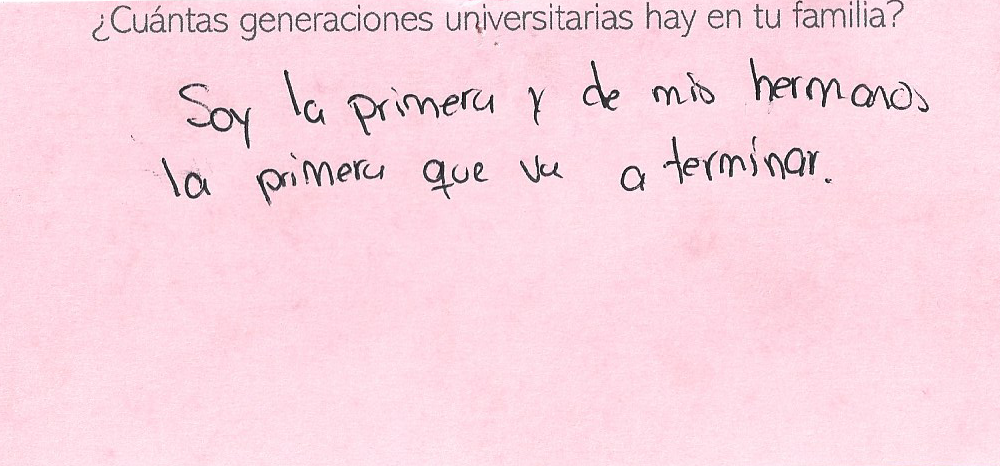 ¿Cuántas generaciones universitarias hay en tu familia?
Soy la primera y de mis hermanos
la primera que va a terminar.